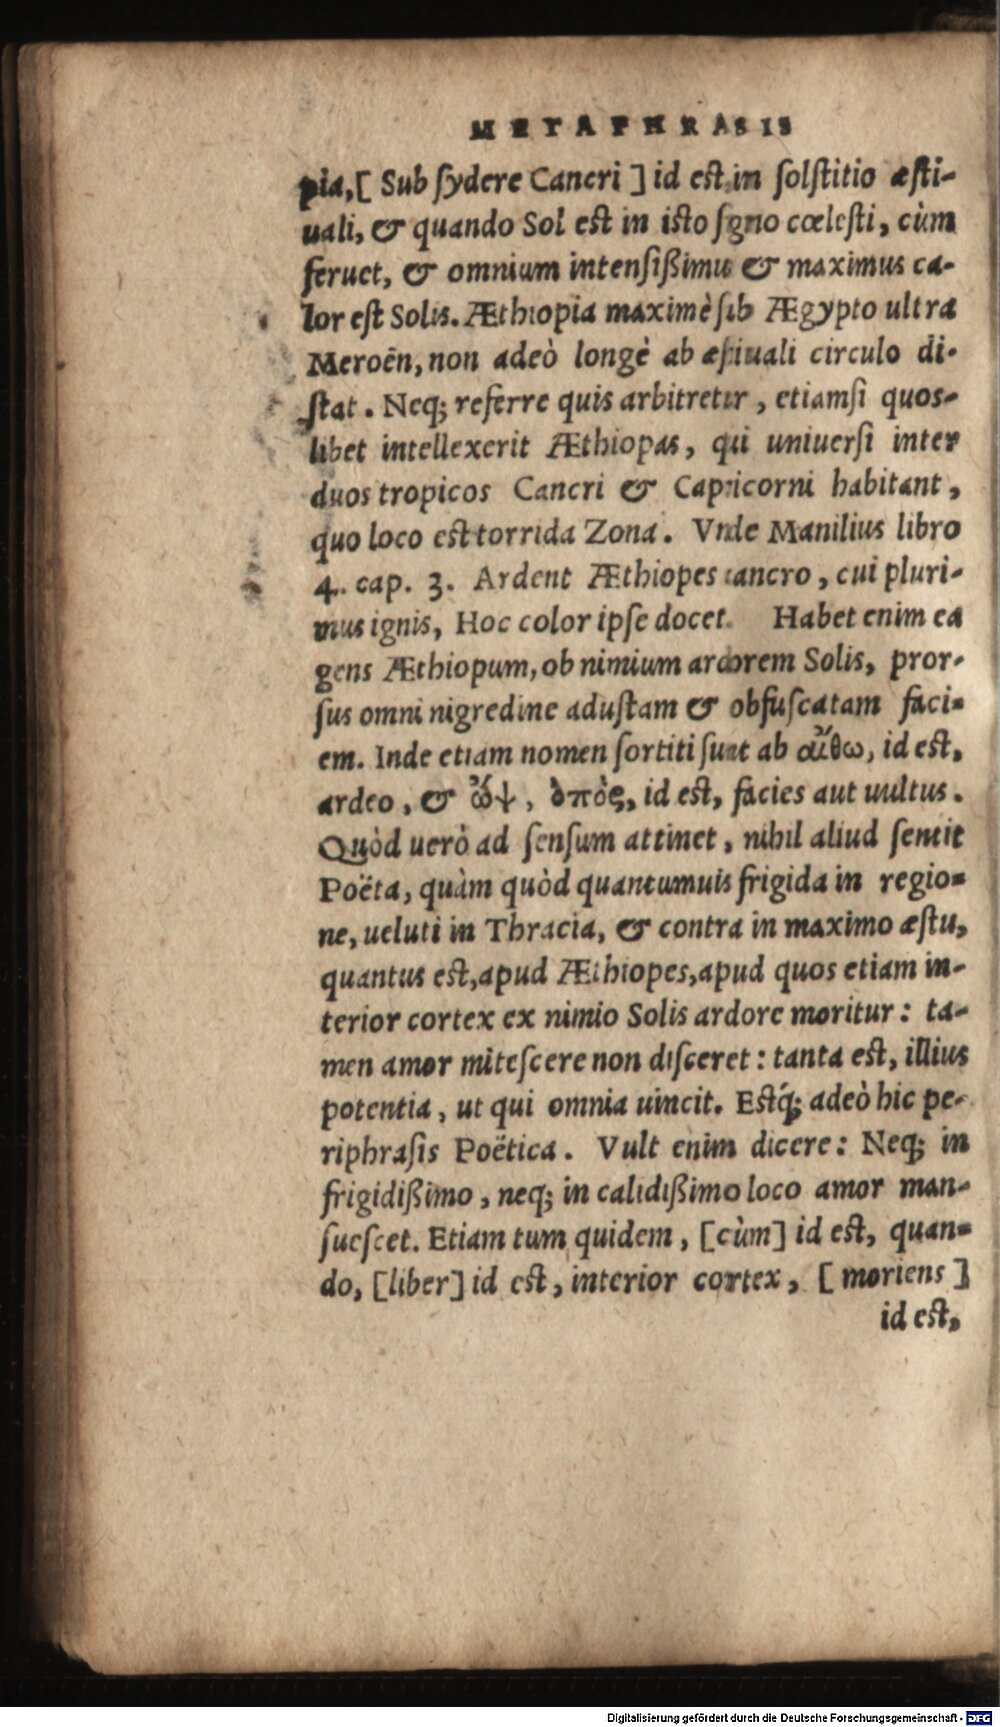 METAPHRASIS
pia, [ Sub ſydere Cancri ] id eſt in ſolſtitio æſti-
uali, & quando Sol eſt in iſto ſigno cœleſti, cùm
feruet, & omnium intenſißimus & maximus ca-
lor eſt Solis. Æthiopia maximè ſub Ægypto ultra
Meroën, non adeò longè ab æſtiuali circulo di-
ſtat. Neq; referre quis arbitretur, etiamſi quos-
libet intellexerit Æthiopas, qui uniuerſi inter
duos tropicos Cancri & Capricorni habitant,
quo loco eſt torrida Zona. Vnde Manilius libro
4. cap. 3. Ardent Æthiopes cancro, cui pluri-
mus ignis, Hoc color ipſe docet. Habet enim ea
gens Æthiopum, ob nimium ardorem Solis, pror-
ſus omni nigredine aduſtam & obfuſcatam faci-
em. Inde etiam nomen ſortiti ſunt ab αἴθω, id eſt,
ardeo, & ὤψ, ὀπὸς, id eſt, facies aut uultus.
Quòd uerò ad ſenſum attinet, nihil aliud ſentit
Poëta, quàm quòd quantumuis frigida in regio-
ne, ueluti in Thracia, & contra in maximo æſtu,
quantus eſt, apud Æthiopes, apud quos etiam in-
terior cortex ex nimio Solis ardore moritur: ta-
men amor miteſcere non diſceret: tanta eſt, illius
potentia, ut qui omnia uincit. Eſtq́; adeò hic pe-
riphraſis Poëtica. Vult enim dicere: Neq; in
frigidißimo, neq; in calidißimo loco amor man-
ſueſcet. Etiam tum quidem, [cùm] id eſt, quan-
do, [liber] id eſt, interior cortex, [ moriens ]
id eſt,
Digitalisierung gefördert durch die Deutsche Forschungsgemeinschaft - DFG